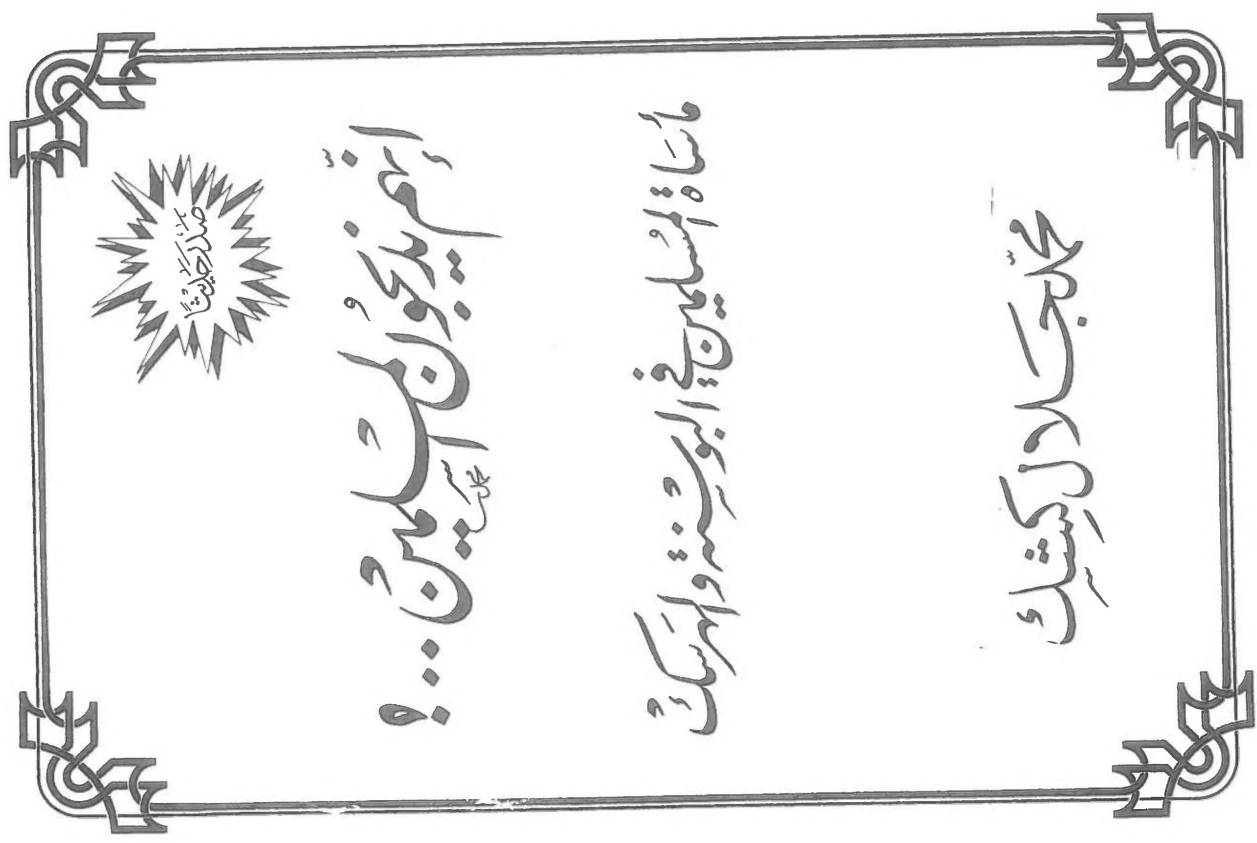 صدر حديثًا
إنّهم يذبحون المسلمين..!
مأساة المسلمين في البوسنة والهرسك
محمّد جلال كشك